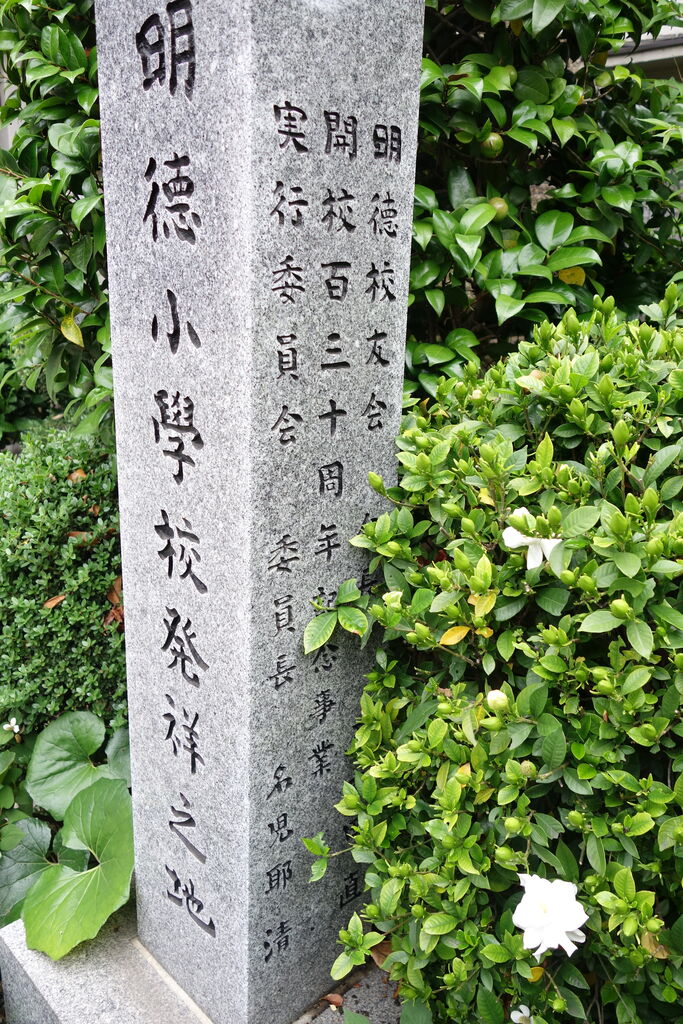 明德小學校発祥之地
明德校友会 会長 直
開校百三十周年記念事業
実行委員会 委員長 名児耶 清